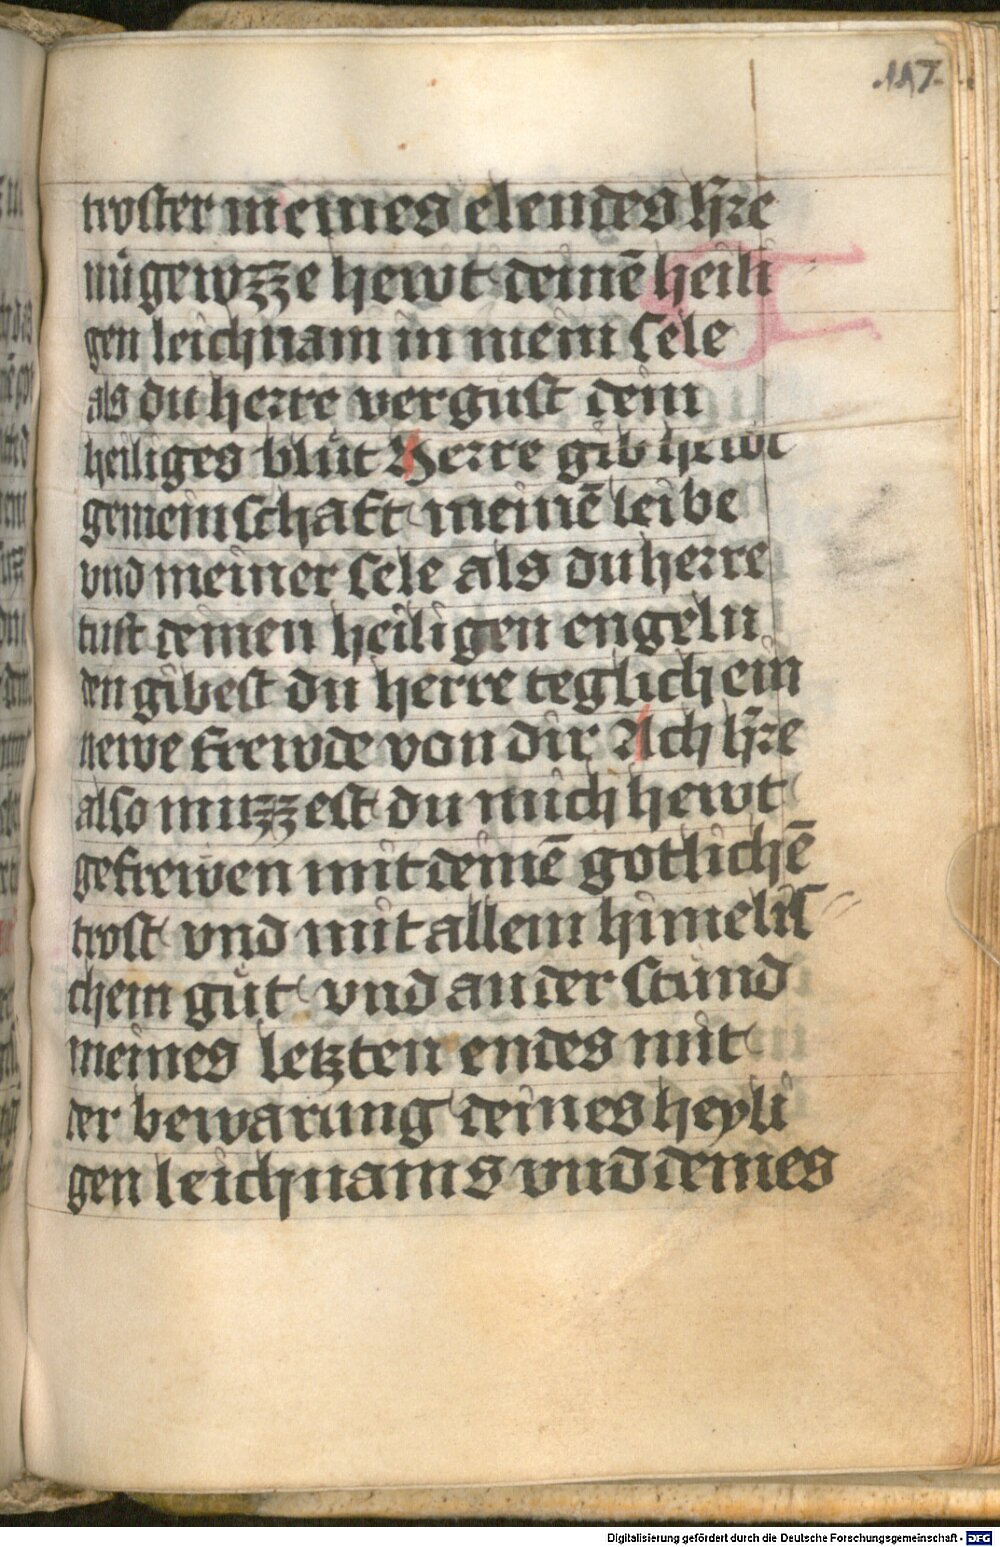 .117.
troster meines elendes hʼre
nu gewzze hewt deinē heili
gen leichnam in mein sele
als du herre vergust dein
heiliges blut Herre gib hewt
gemeinschaft meinē leibe
vnd meiner sele als du herre
tust deinen heiligen engeln
den gibest du herre teglich ein
newe frewde von dir Ach hʼre
also muzzest du mich hewt
gefrewen mit deinē gotlichē
trost vnd mit allem himelis
chem gut vnd an der stund
meines letzten endes mit
der bewarung deines heyli
gen leichnams vnd deines
Digitalisierung gefördert durch die Deutsche Forschungsgemeinschaft - DFG